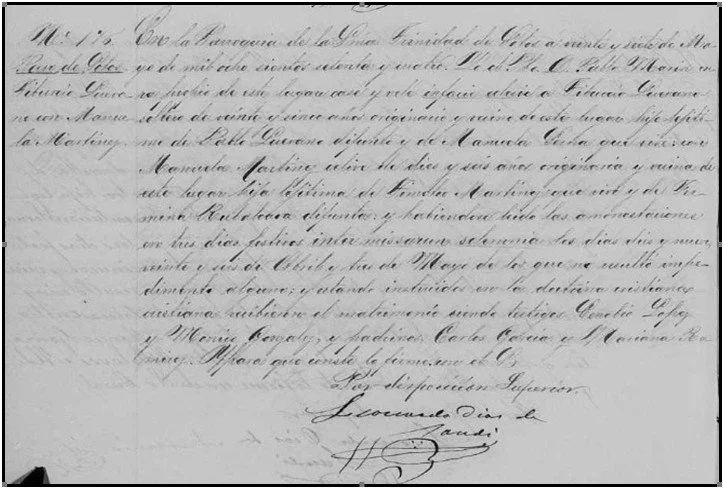 No. 176.
Paso de Potos
Tiburcio Guevara
no con Manue
la Martinez.
En la Parroquia de la Sma. Trinidad de Potos a veinte y siete de Ma
yo de mil ocho cientos setenta y cuatro. Yo el Pbo. D. Pablo Marin cu
ra propio de este lugar casé y velé infacie eclesie a Tiburcio Guevara
soltero de veinte y cinco años originario y vecino de este lugar hijo legiti
mo de Pablo Guevara difunto y de Manuela que vive: con
Manuela Martinez celibe de dies y seis años originaria y vecina de
este lugar hija legitima de Timoteo Martinez que vive y de Fer
mina difunta: y habiendose leido las amonestaciones
en tres dias festivos inter missarum solemnia los dias dies y nueve
veinte y seis de Abril y tres de Mayo de los que no resultó impe
dimento alguno; y estando instruidos en la doctrina cristiana
recibieron el matrimonio siendo testigos Lopez
y Gonzalez, y padrinos, Carlos Garcia y Mariana Ra
mirez. Y para que conste lo firmé con el P.
Por disposicion Superior.
Leonardo Dias de
Sandi